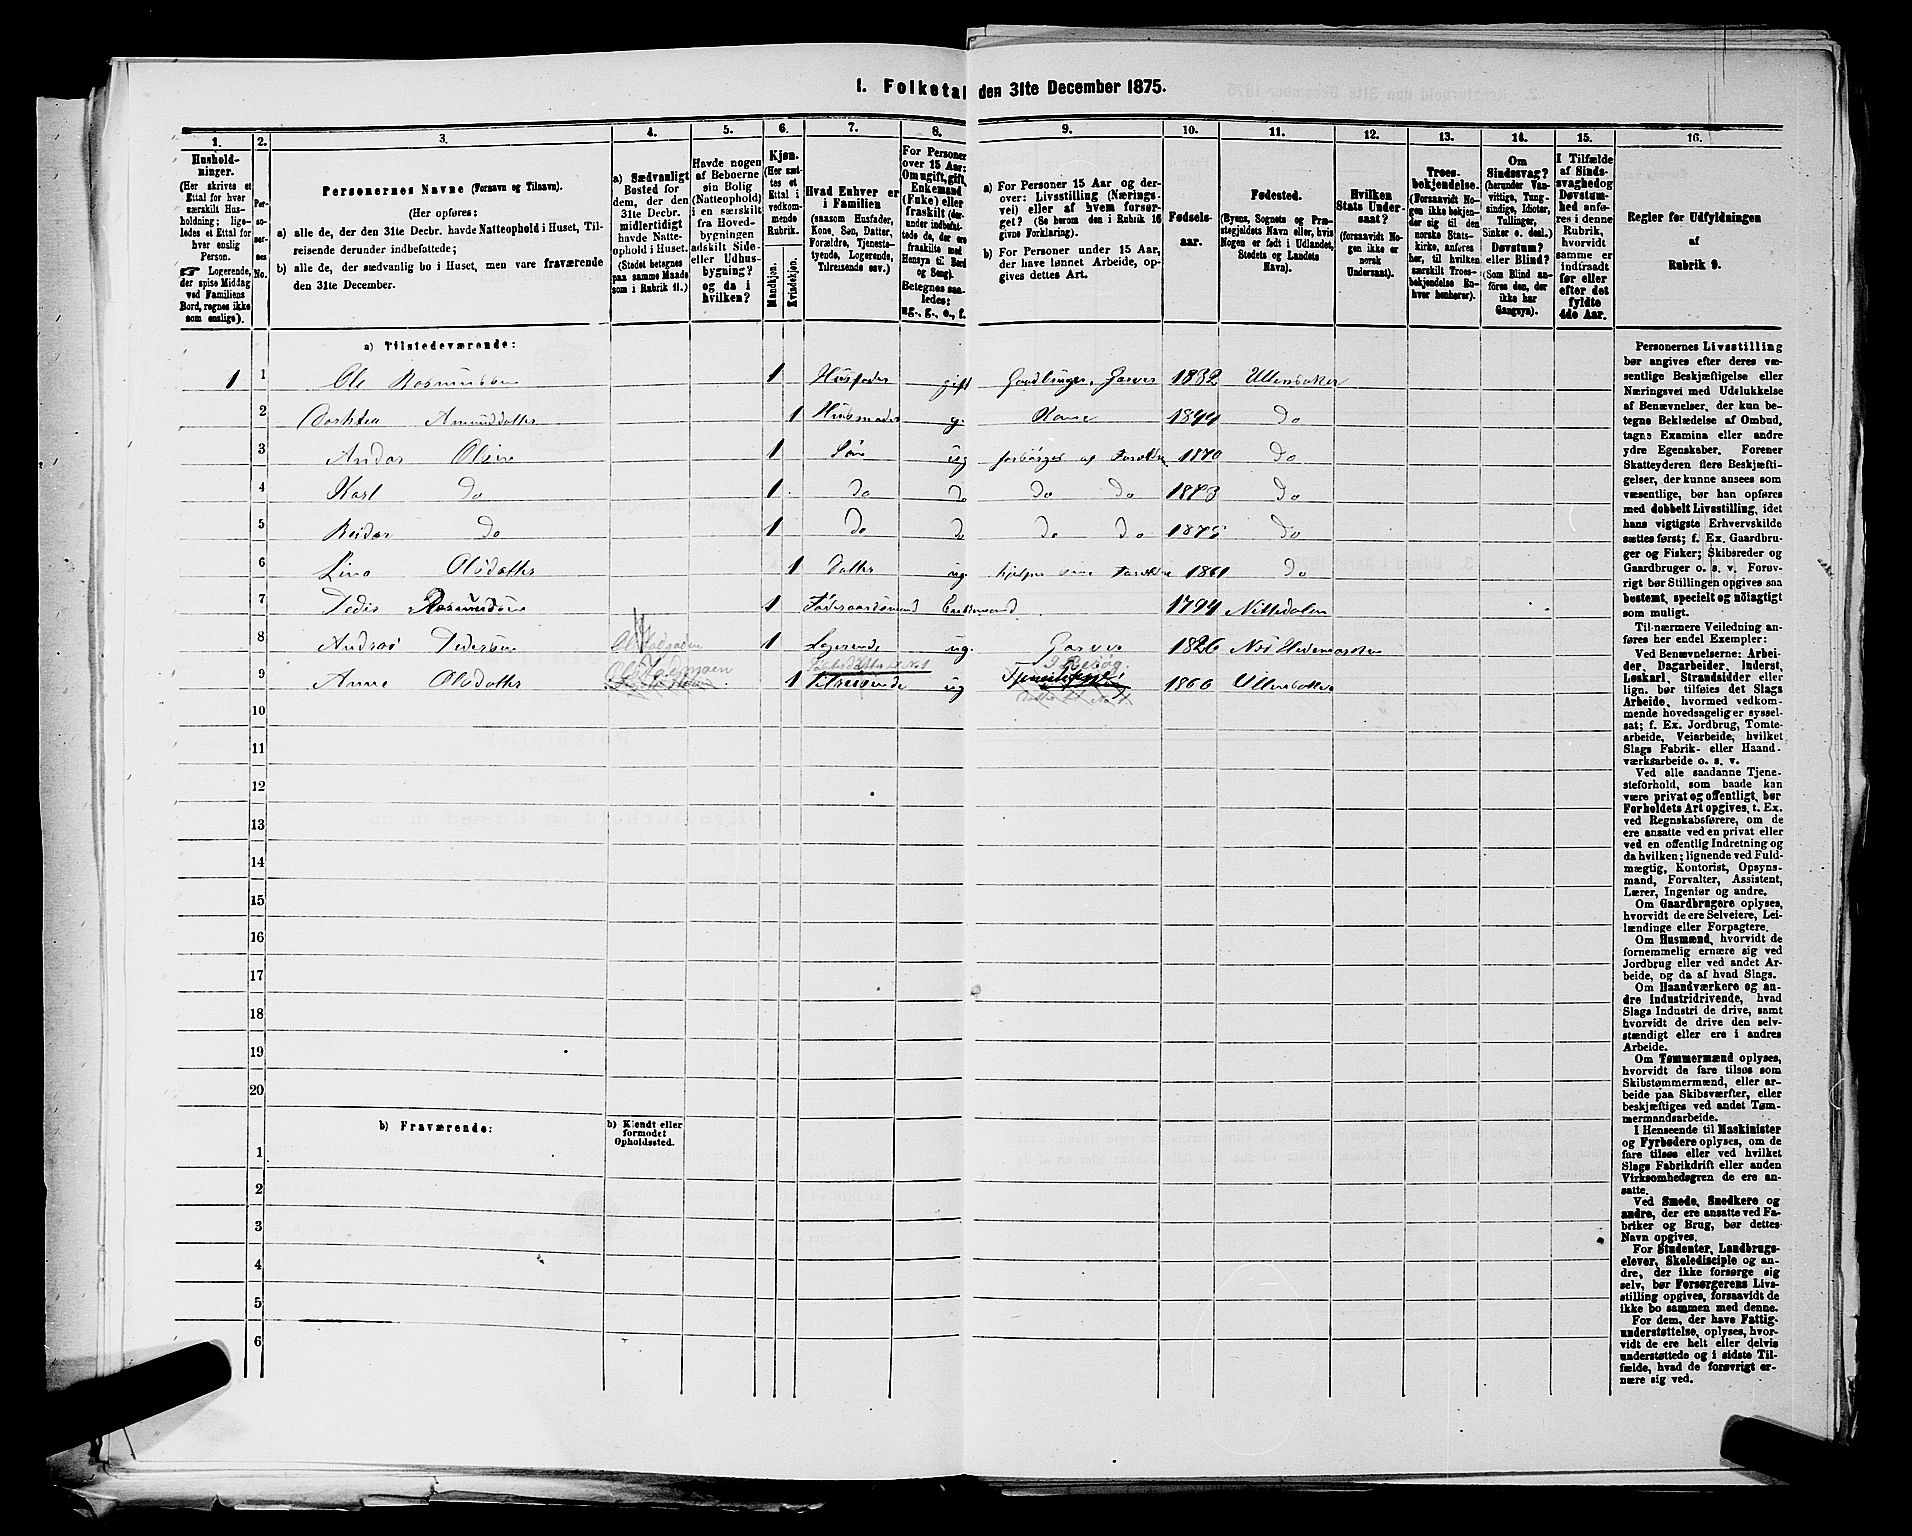 1. Folketal den 31te December 1875.
1.
Hushold-
ninger.
(Her skrives et
Ettal for hver
særskilt Hus-
holdning; lige-
ledes et Ettal for
hver enslig
Person.
☛ Logerende,
der spise Middag
ved Familiens
Bord, regnes ikke
som enslige).
2.
Per-
so-
ner-
nes
No.
3.
Personernes Navne (Fornavn og Tilnavn).
(Her opføres:
a) alle de, der den 31te Decbr. havde Natteophold i Huset, Til-
reisende derunder indbefattede;
b) alle de, der sædvanlig bo i Huset, men vare fraværende
den 31te December.
4.
a) Sædvanligt
Bosted for
dem, der den
31te Decbr.
midlertidigt
havde Natte-
ophold i Huset.
(Stedet betegnes
paa samme Maade
som i Rubrik 11.)
5.
Havde nogen
af Beboerne
sin Bolig
(Natteophold)
i en særskilt
fra Hoved-
bygningen
adskilt Side-
eller Udhus-
bygning?
og da i
hvilken?
6.
Kjøn.
(Her sæt-
tes et
Ettal i
vedkom-
mende
Rubrik.
Mandkjøn.
Kvindekjøn.
7.
Hvad Enhver er
i Familien
(saasom Husfader,
Kone, Søn, Datter,
Forældre, Tjeneste-
tyende, Logerende,
Tilreisende osv.)
8.
For Personer
over 15 Aar:
Om ugift, gift,
Enkemand
(Enke) eller
fraskilt (der-
under indbefat-
tede de, der ere
fraskilte med
Hensyn til Bord
og Seng).
Betegnes saa-
ledes:
ug., g., e., f.
9.
a) For Personer 15 Aar og der-
over: Livsstilling (Nærings-
vei) eller af hvem forsør-
get? (Se herom den i Rubrik 16
givne Forklaring).
b) For Personer under 15 Aar,
der have lønnet Arbeide, op-
gives dettes Art.
10.
Fødsels-
aar.
11.
Fødested.
(Byens, Sognets og Præ-
stegjeldets Navn eller, hvis
Nogen er født i Udlandet,
Stedets og Landets
Navn).
12.
Hvilken
Stats Under-
saat?
(forsaavidt No-
gen ikke er
norsk
Undersaat).
13.
Troes-
bekjendelse.
(Forsaavidt No-
gen ikke bekjen-
der sig til den
norske Stats-
kirke, anføres
her, til hvilken
særskilt Troes-
bekjendelse En-
hver henhører).
14.
Om
Sindssvag?
(herunder Van-
vittige, Tung-
sindige, Idioter,
Tullinger,
Sinker o. desl.)
Døvstum?
eller Blind?
(Som Blind an-
føres den, der
ikke har
Gangsyn).
15.
I Tilfælde
af Sinds-
svaghed og
Døvstum-
hed anfø-
res i denne
Rubrik,
hvorvidt
samme er
indtraadt
før eller
efter det
fyldte
4de Aar.
16.
Regler for Udfyldningen
af
Rubrik 9.
a) Tilstedeværende:
1 1 Ole Rasmussen 1 Husfader gift Gaardbruger, Garver 1832 Ullensaker
2 Dorthea Amundsdatter 1 Husmoder g. Kone 1844 Do
3 Andor Olsen 1 Søn ug forsørges af Forældre 1870 Do
4 Karl Do 1 Do Do Do Do 1873 Do
5 Reidar Do 1 Do Do Do Do 1875 Do
6 Lina Olsdatter 1 Datter ug. hjelper sine Forældre 1861 Do
7 Peder Rasmussen 1 Føderaadsmand Enkemand 1794 Nittedalen
8 Andreas Pedersen 1 Logerende ug. Garver 1826
9 Anne Olsdatter 1 Tilreisende ug 1860 Ullensaker
10
11
12
13
14
15
16
17
18
19
20
b) Fraværende:
b) Kjendt eller
formodet
Opholdssted.
1
2
3
4
5
6
Personernes Livsstilling
bør angives efter deres væ-
sentlige Beskjæftigelse eller
Næringsvei med Udelukkelse
af Benævnelser, der kun be-
tegne Beklædelse af Ombud,
tagne Examina eller andre
ydre Egenskaber. Forener
Skatteyderen flere Beskjæfti-
gelser, der kunne ansees som
væsentlige, bør han opføres
med dobbelt Livsstilling, idet
hans vigtigste Erhvervskilde
sættes først; f. Ex. Gaardbru-
ger og Fisker; Skibsreder og
Gaardbruger o. s. v. Forøv-
rigt bør Stillingen opgives saa
bestemt, specielt og nøiagtigt
som muligt.
Til nærmere Veiledning an-
føres her endel Exempler:
Ved Benævnelserne: Arbei-
der, Dagarbeider, Inderst,
Løskarl, Strandsidder eller
lign. bør tilføies det Slags
Arbeide, hvormed vedkom-
mende hovedsagelig er syssel-
sat; f. Ex. Jordbrug, Tomte-
arbeide, Veiarbeide, hvilket
Slags Fabrik- eller Haand-
værksarbeide o. s. v.
Ved alle saadanne Tjene-
steforhold, som baade kan
være privat og offentligt, bør
Forholdets Art opgives, t. Ex.
ved Regnskabsførere, om de
ere ansatte ved en privat eller
ved en offentlig Indretning og
da hvilken; lignende ved Fuld-
mægtig, Kontorist, Opsyns-
mand, Forvalter, Assistent,
Lærer, Ingeniør og andre.
Om Gaardbrugere oplyses,
hvorvidt de ere Selveiere, Lei-
lændinge eller Forpagtere.
Om Husmænd, hvorvidt de
fornemmelig ernære sig ved
Jordbrug eller ved andet Ar-
beide, og da af hvad Slags.
Om Haandværkere og an-
dre Industridrivende, hvad
Slags Industri de drive, samt
hvorvidt de drive den selv-
stændigt eller ere i andres
Arbeide.
Om Tømmermænd oplyses,
hvorvidt de fare tilsøs som
Skibstømmermænd, eller ar-
beide paa Skibsværfter, eller
beskjæftiges ved andet Tøm-
mermandsarbeide.
I Henseende til Maskinister
og Fyrbødere oplyses, om de
fare tilsøs eller ved hvilket
Slags Fabrikdrift eller anden
Virksomhedsgren de ere an-
satte.
Ved Smede, Snedkere og
andre, der ere ansatte ved Fa-
briker og Brug, bør dettes
Navn opgives.
For Studenter, Landbrugs-
elever, Skoledisciple og an-
dre, der ikke forsørge sig
selv, bør Forsørgerens Livs-
stilling opgives, forsaavidt de
ikke bo sammen med denne.
For dem, der have Fattig-
understøttelse, oplyses, hvor-
vidt de ere helt eller delvis
understøttede og i sidste Til-
fælde, hvad de forøvrigt er-
nære sig ved.